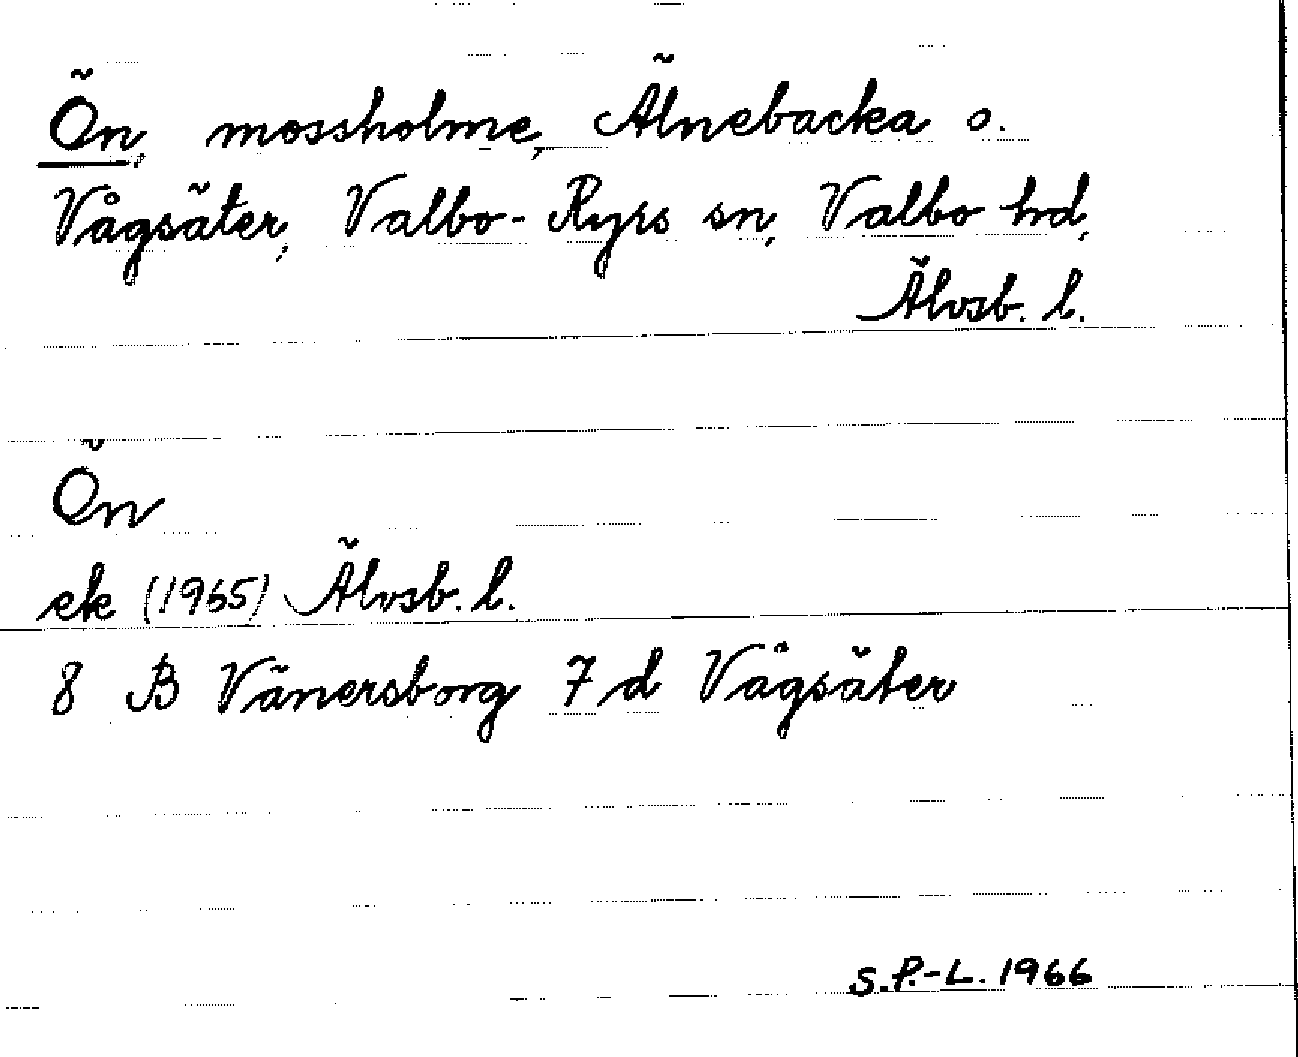 Ön, mossholme, Älnebacka o.
Vågsäter, Valbo-Ryrs sn, Valbo hd,
Älvsb. l.
Ön
ek (1965) Älvsb. l.
8 B Vänersborg 7 d Vågsäter
S.P.-L. 1966